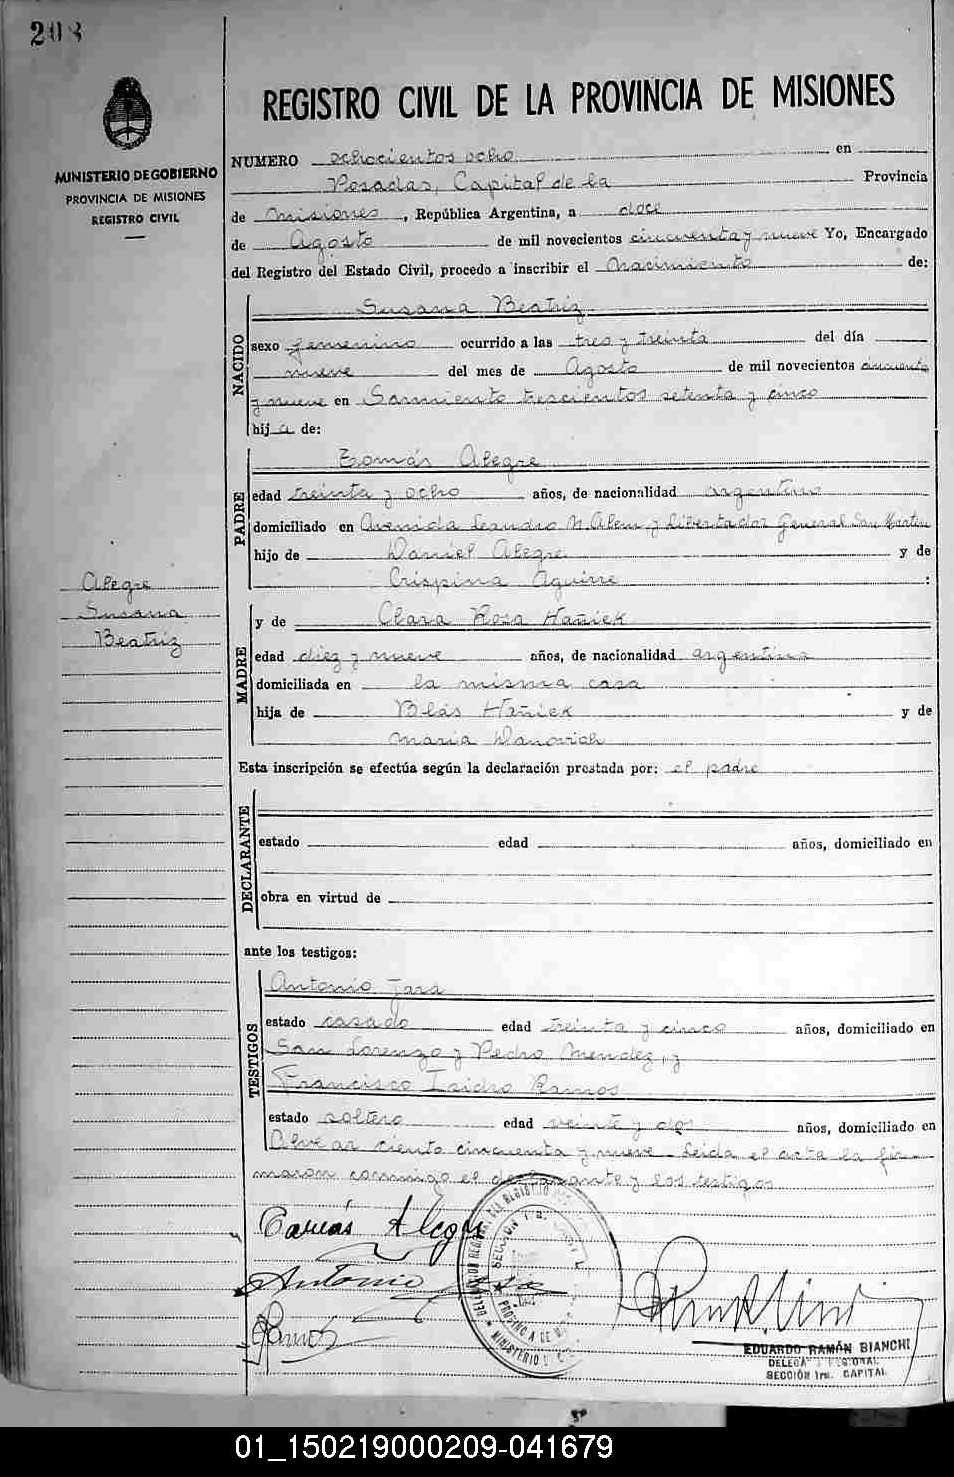 203
REGISTRO CIVIL DE LA PROVINCIA DE MISIONES
MINISTERIO DE GOBIERNO
PROVINCIA DE MISIONES
REGISTRO CIVIL
NUMERO ochocientos ocho en
Posadas, Capital de la Provincia
de Misiones, República Argentina, a doce
de Agosto de mil novecientos cincuenta y nueve Yo, Encargado
del Registro del Estado Civil, procedo a inscribir el Nacimiento de:
NACIDO
Susana Beatriz
sexo femenino ocurrido a las tres y treinta del día
nueve del mes de Agosto de mil novecientos cincuenta
y nueve en Sarmiento trescientos setenta y cinco
hija de:
PADRE
Tomás Alegre
edad treinta y ocho años, de nacionalidad argentino
domiciliado en Avenida Leandro N. Alem y Libertador General San Martín
hijo de Daniel Alegre y de
Crispina Aguirre :
Alegre
Susana
Beatriz
MADRE
y de Clara Rosa Hañiek
edad diez y nueve años, de nacionalidad argentina
domiciliada en la misma casa
hija de Blás Hañiek y de
María Wanovich
Esta inscripción se efectúa según la declaración prestada por: el padre
DECLARANTE
estado edad años, domiciliado en
obra en virtud de
ante los testigos:
TESTIGOS
Antonio Jara
estado casado edad treinta y cinco años, domiciliado en
San Lorenzo y Pedro Mendez, y
Francisco Isidro Ramos
estado soltero edad veinte y dos años, domiciliado en
Alvear ciento cincuenta y nueve. Leída el acta la fir
maron conmigo el declarante y los testigos
Tomás Alegre
Antonio Jara
Ramos
EDUARDO RAMÓN BIANCHI
DELEGADO REGIONAL
SECCIÓN 1ra. CAPITAL
01_150219000209-041679